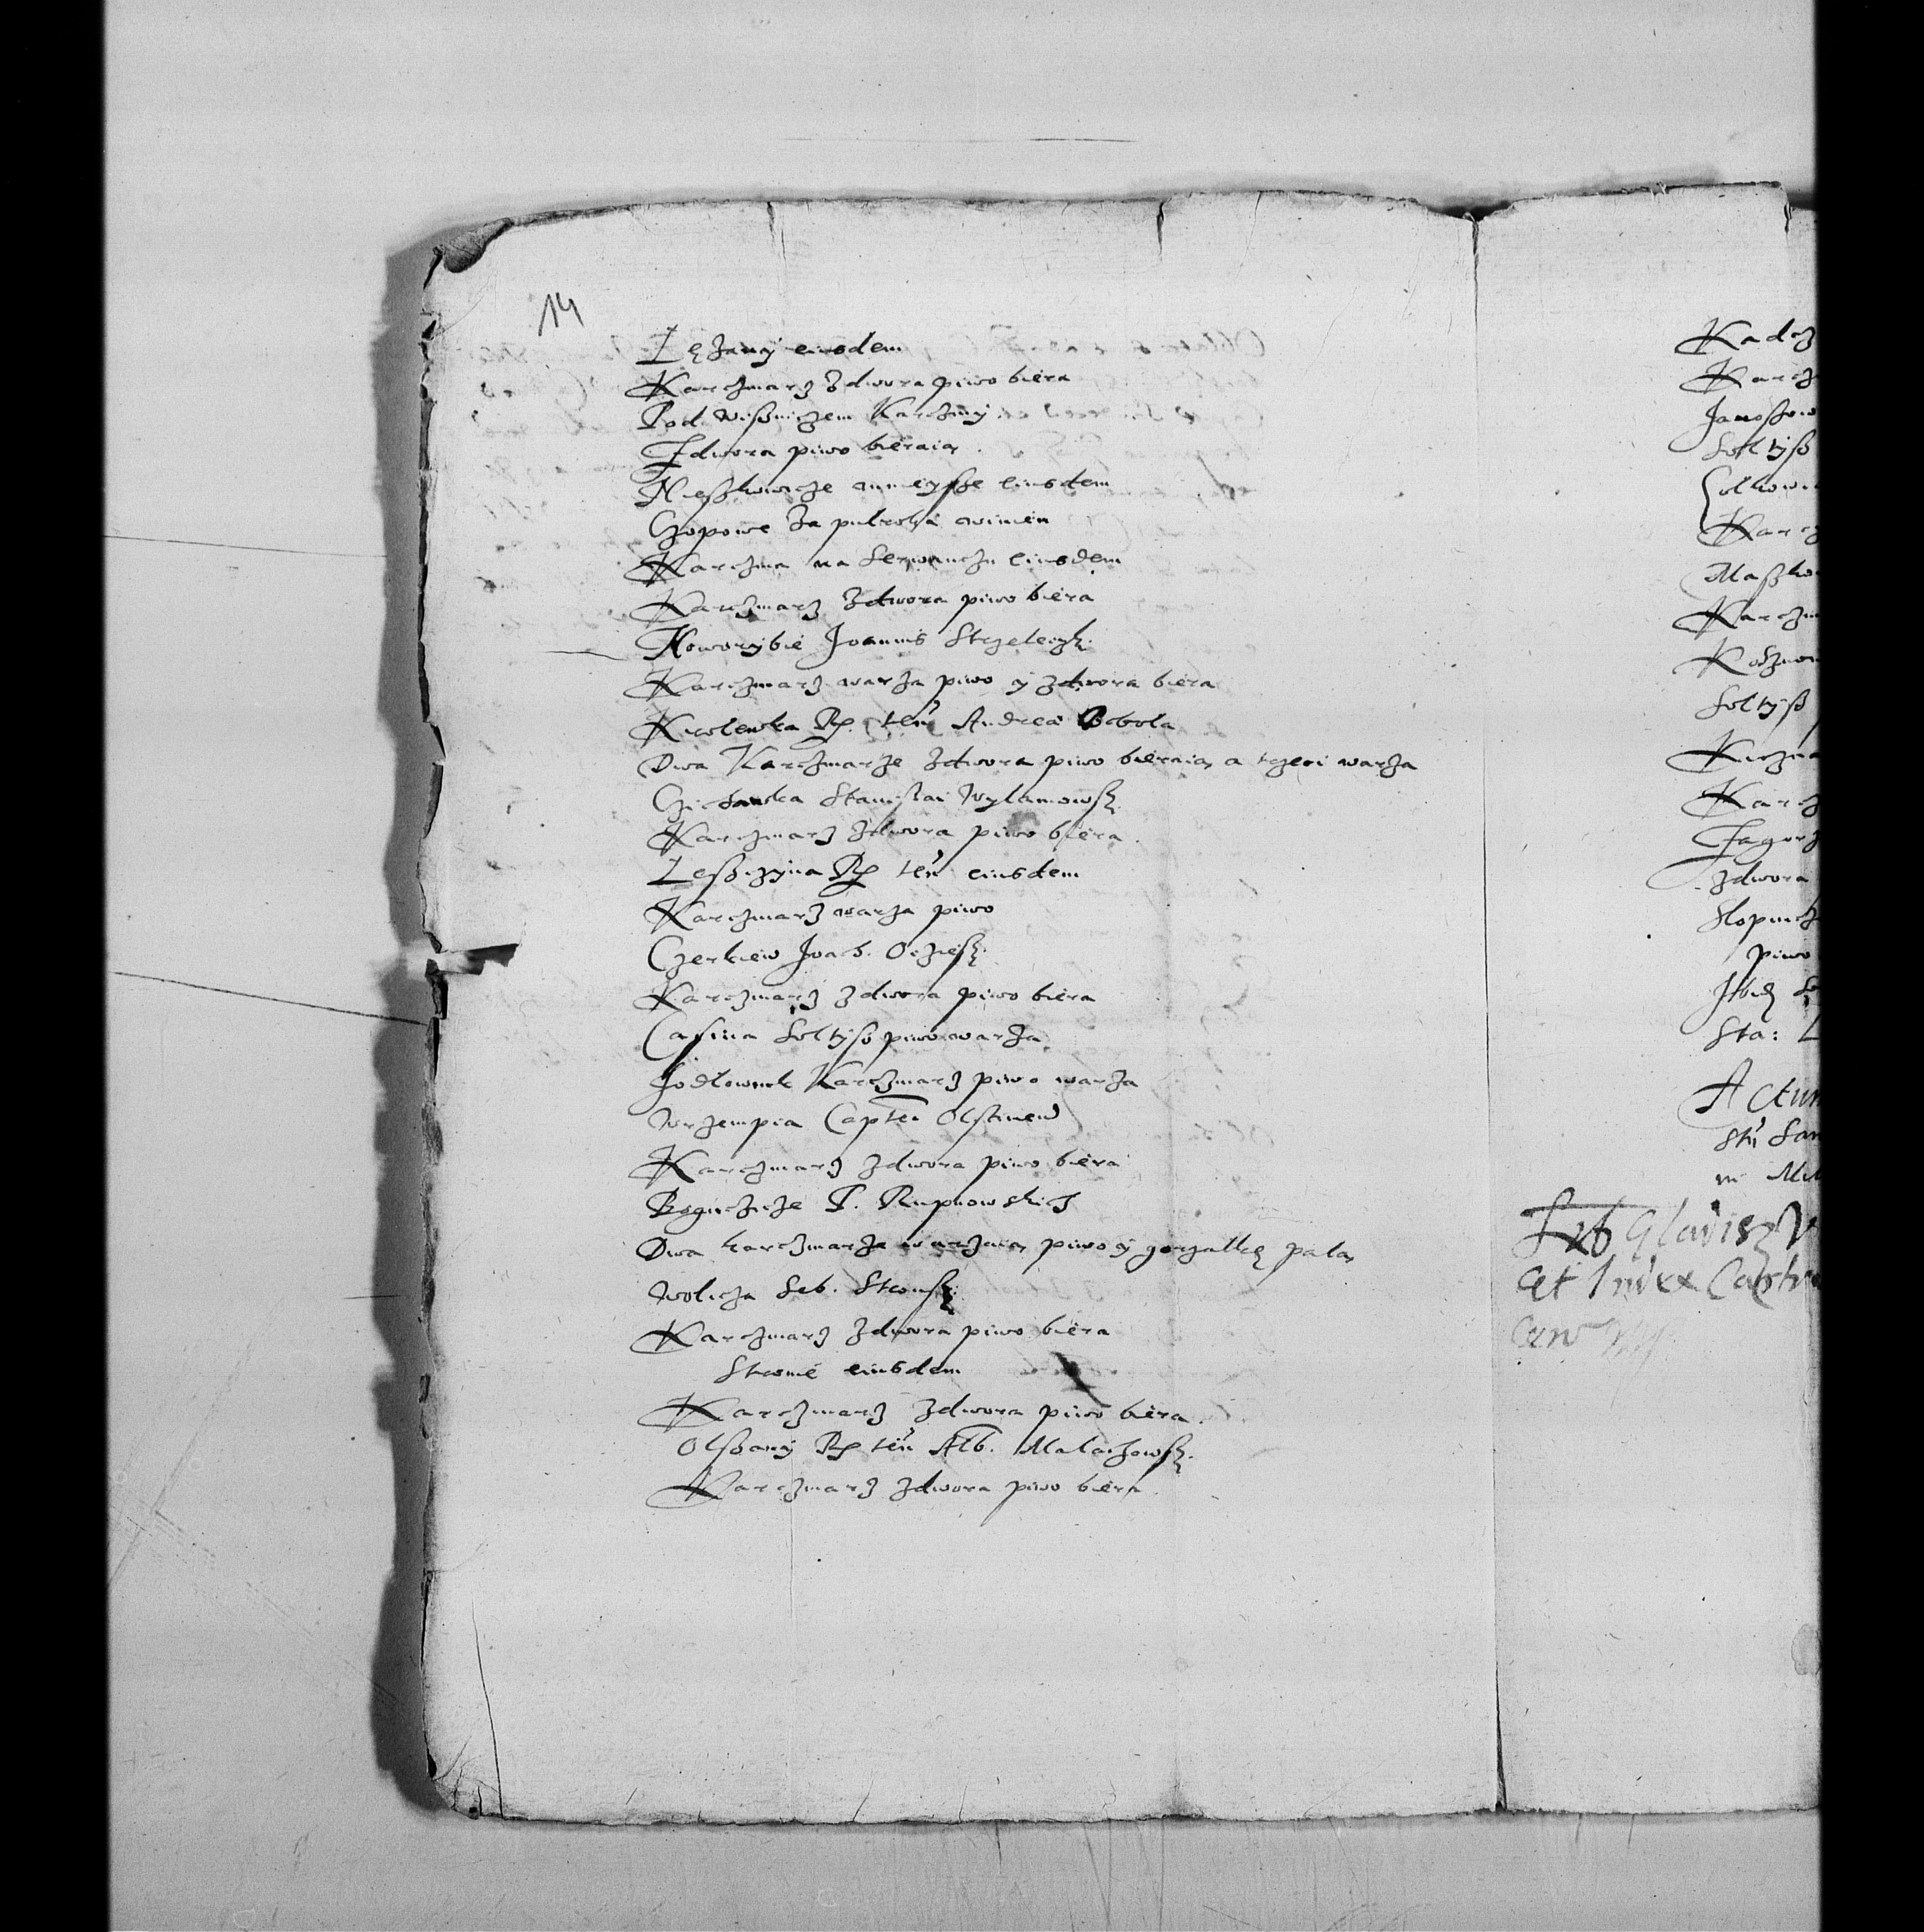 14
Lężany eiusdem
Karczmarz zdwora piwo biera
Pod Wisniczem Karczmy
Zdwora piwo bieraią
Nieszkowicze mnieysze eiusdem
Czopowe za pultora
Karczma na eiusdem
Karczmarz zdwora piwo biera
Noworybie Joannis Strzeleczki
Karczmarz warza piwo y zdwora biera
Krolewska Rp. ten Andreae Bobola
Dwa Karczmarze zdwora piwo bieraią a trzeci warza
Czichawka Stanislai Wylamowsk
Karczmarz zdwora piwo biera.
Leszczyna Rp ten eiusdem
Karczmarz warza piwo
Czerkiew Joach. Ocziesk.
Karczmarz zdwora piwo biera
Casina Soltyss piwo warza
Jodlownik Karczmarz piwo warza
Wrzempia Capten Olstinen
Karczmarz zdwora piwo biera
Boguczicze P. Rupnowskich
Dwa karczmarza warzaią piwo y gorzalkę palą
Wolicza Seb. Stronsk.
Karczmarz zdwora piwo biera
Stronie eiusdem
Karczmarz zdwora piwo biera.
Olszany Rp ten Alb. Malachowsk.
Karczmarz zdwora piwo biera
Kadcz
Karcz
Janossow
Soltyss
Karcz
Maszko
Karczm
Soltyss
Karcz
Zagorz
zdwora
Slopnicz
piwo
Ibid
Sta: L
Actum
Seb Gladisz
et Iudex Castr